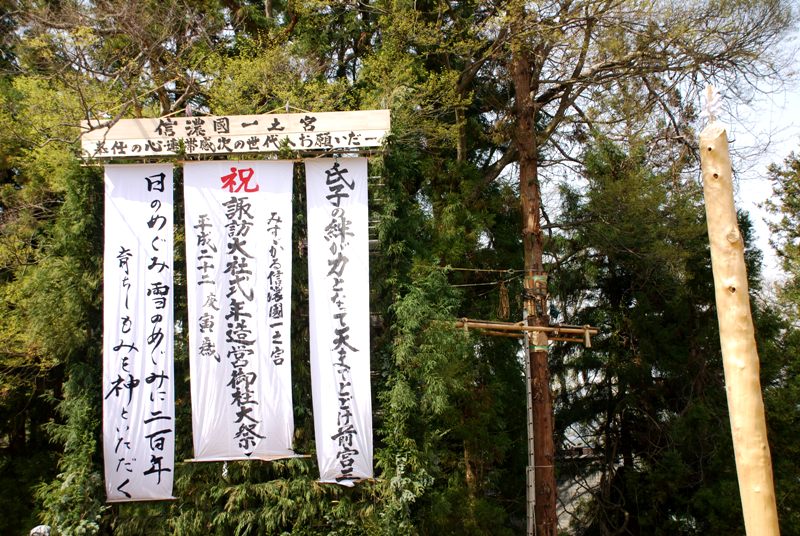 信濃國一之宮
奉仕の心連帯感次の世代へお願いだー
氏子の絆が力となって天までとどけ前宮一
祝
みすゞかる信濃國一之宮
諏訪大社式年造宮御柱大祭
平成二十二庚寅歳
日のめぐみ雪のめぐみに二百年
育ちしもみを神といただく